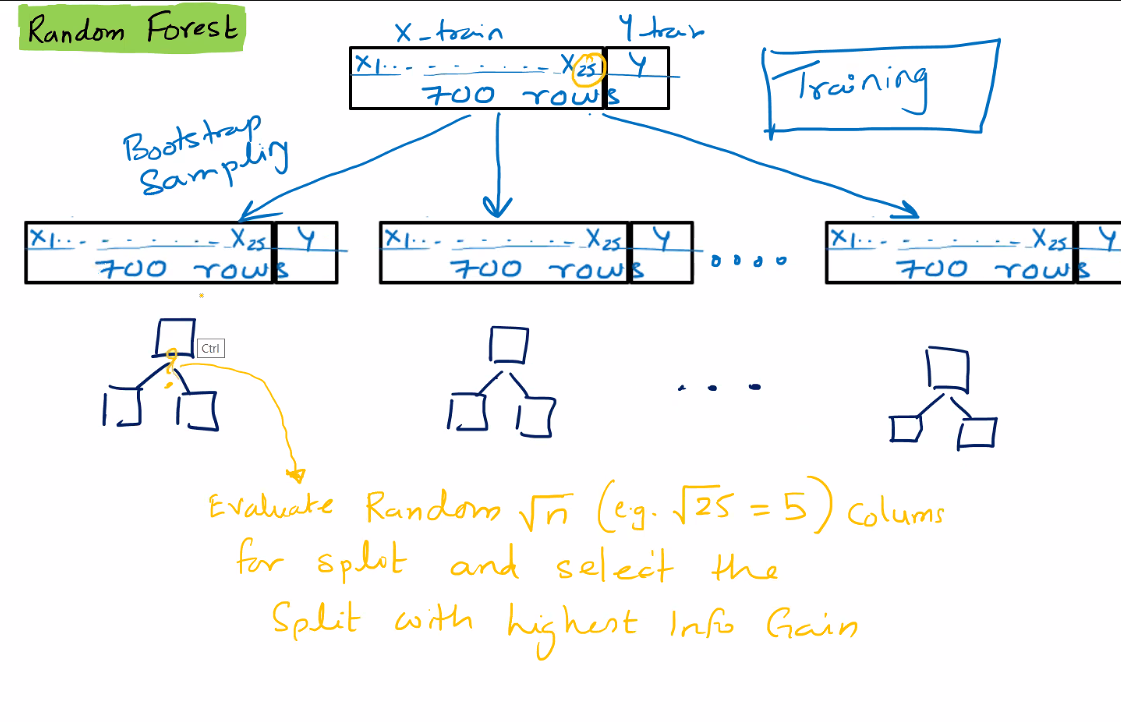 Random Forest
X-train
Y train
X1.. - - . . . . - X25 Y
700 rows
Training
Bootstrap
Sampling
X1.. - - . . . . - X25 Y
700 rows
X1.. - - . . . . - X25 Y
700 rows
X1.. - - . . . . - X25 Y
700 rows
Ctrl
?
Evaluate Random √n (e.g. √25 = 5) Colums
for split and select the
Split with highest Info Gain